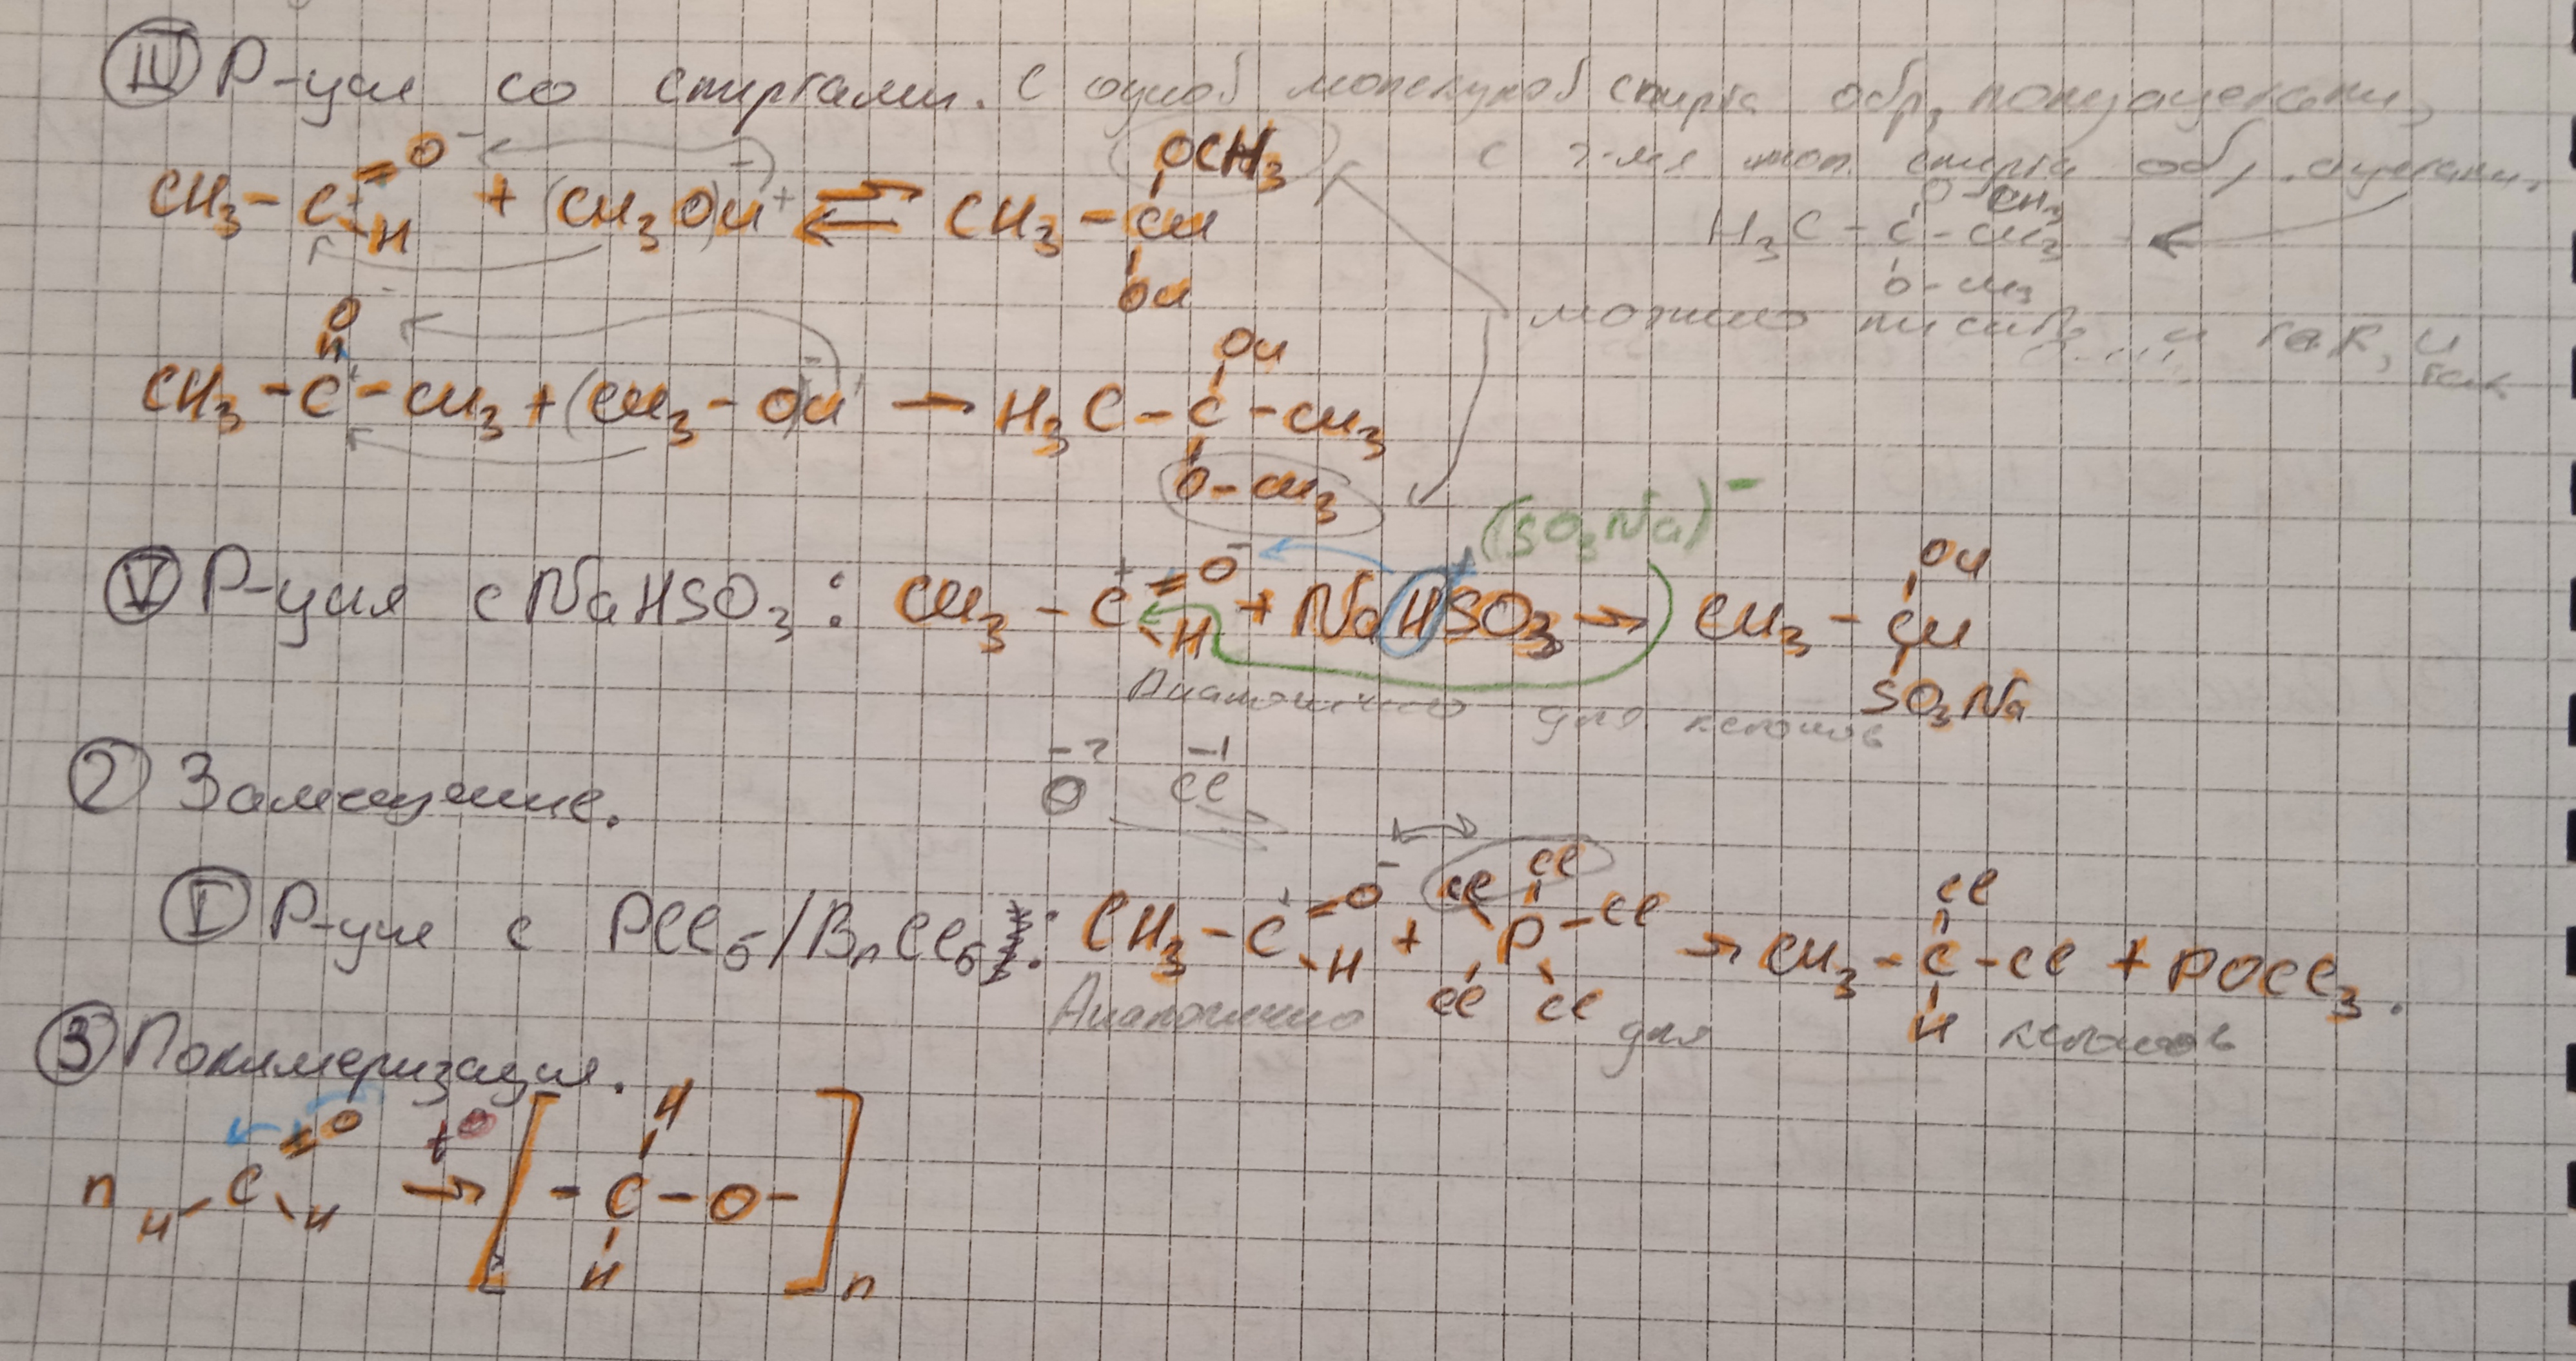 IV Р-ция со спиртами. С одной молекулой спирта обр. полуацетали,
с 2-мя мол. спирта обр. ацетали.
CH₃-C⁺(=O⁻)-H + (CH₃O)⁻H⁺ ⇄ CH₃-CH(OCH₃)-OH
H₃C-C(O-CH₃)(O-CH₃)-CH₃
можно писать и так, и так
CH₃-C⁺(=O⁻)-CH₃ + (CH₃-O)⁻H⁺ → H₃C-C(OH)(O-CH₃)-CH₃
V Р-ция с NaHSO₃: CH₃-C⁺(=O⁻)-H + NaH⁺SO₃ → CH₃-CH(OH)-SO₃Na
(SO₃Na)⁻
Аналогично для кетонов
2 Замещение.
O⁻² Cl⁻¹
I Р-ция с PCl₅/BrCl₅: CH₃-C⁺(=O⁻)-H + PCl₅ → CH₃-C(Cl)(H)-Cl + POCl₃.
Аналогично для кетонов
3 Полимеризация.
n H-C(=O)-H →t° [-C(H)(H)-O-]n